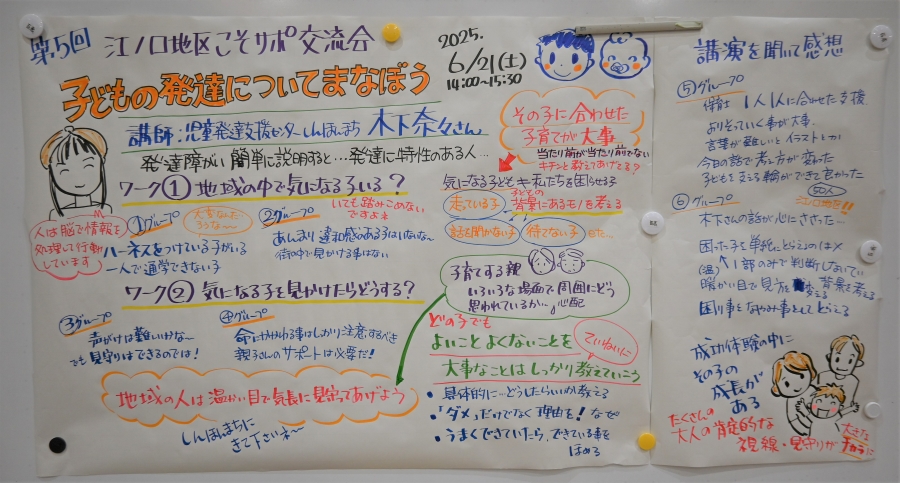 第5回 江ノ口地区こそサポ交流会
2025.
6/21(土)
14:00~15:30
子どもの発達についてまなぼう
講師:児童発達支援センターしんほんまち 木下奈々さん
発達障がい 簡単に説明すると…発達に特性のある人…
人は脳で情報を
処理して行動
しています
ワーク① 地域の中で気になる子いる?
①グループ
大変なんだ
ろうな~
ハーネスをつけている子がいる
一人で通学できない子
②グループ
いても踏みこめない
ですよネ
あんまり違和感のある子はいないな~
街の中で見かける事はない
ワーク② 気になる子を見かけたらどうする?
③グループ
声がけは難しいかな~
でも見守りはできるのでは!
④グループ
命にかかわる事はしっかり注意するべき
親子さんのサポートは必要だ!
地域の人は温かい目で気長に見守ってあげよう
しんほんまちに
きて下さいネ~
その子に合わせた
子育てが大事
当たり前が当たり前でない
キチンと教えてあげてる?
気になる子ども キ 私たちを困らせる
子どもの
背景にあるモノを考える
走っている子
話を聞かない子
待てない子
子育てする親
いろいろな場面で周囲にどう
思われているか…心配
どの子でも
よいこと よくないことを
ていねいに
大事なことは しっかり教えていこう
・具体的に…どうしたらいいか教える
・「ダメ」だけでなく理由を! なぜ
・うまくできていたら、できている事を
ほめる
講演を聞いて感想
⑤グループ
保育士 1人1人に合わせた支援
よりそっていく事が大事
言葉が難しいとイラストとか
今日の話で考え方が変わった
子どもを支える輪ができてきてよかった
江ノ口地区を!!
⑥グループ
木下さんの話が心にささった…
困った子を単純にとらえるのは×
1部のみで判断しないでい
暖かい目で見方を変える 背景を考える
困り事をなやみ事としてとらえる
成功体験の中に
その子の
成長が
ある
たくさんの
大人の肯定的な
視線・見守りが 大きな
チカラに